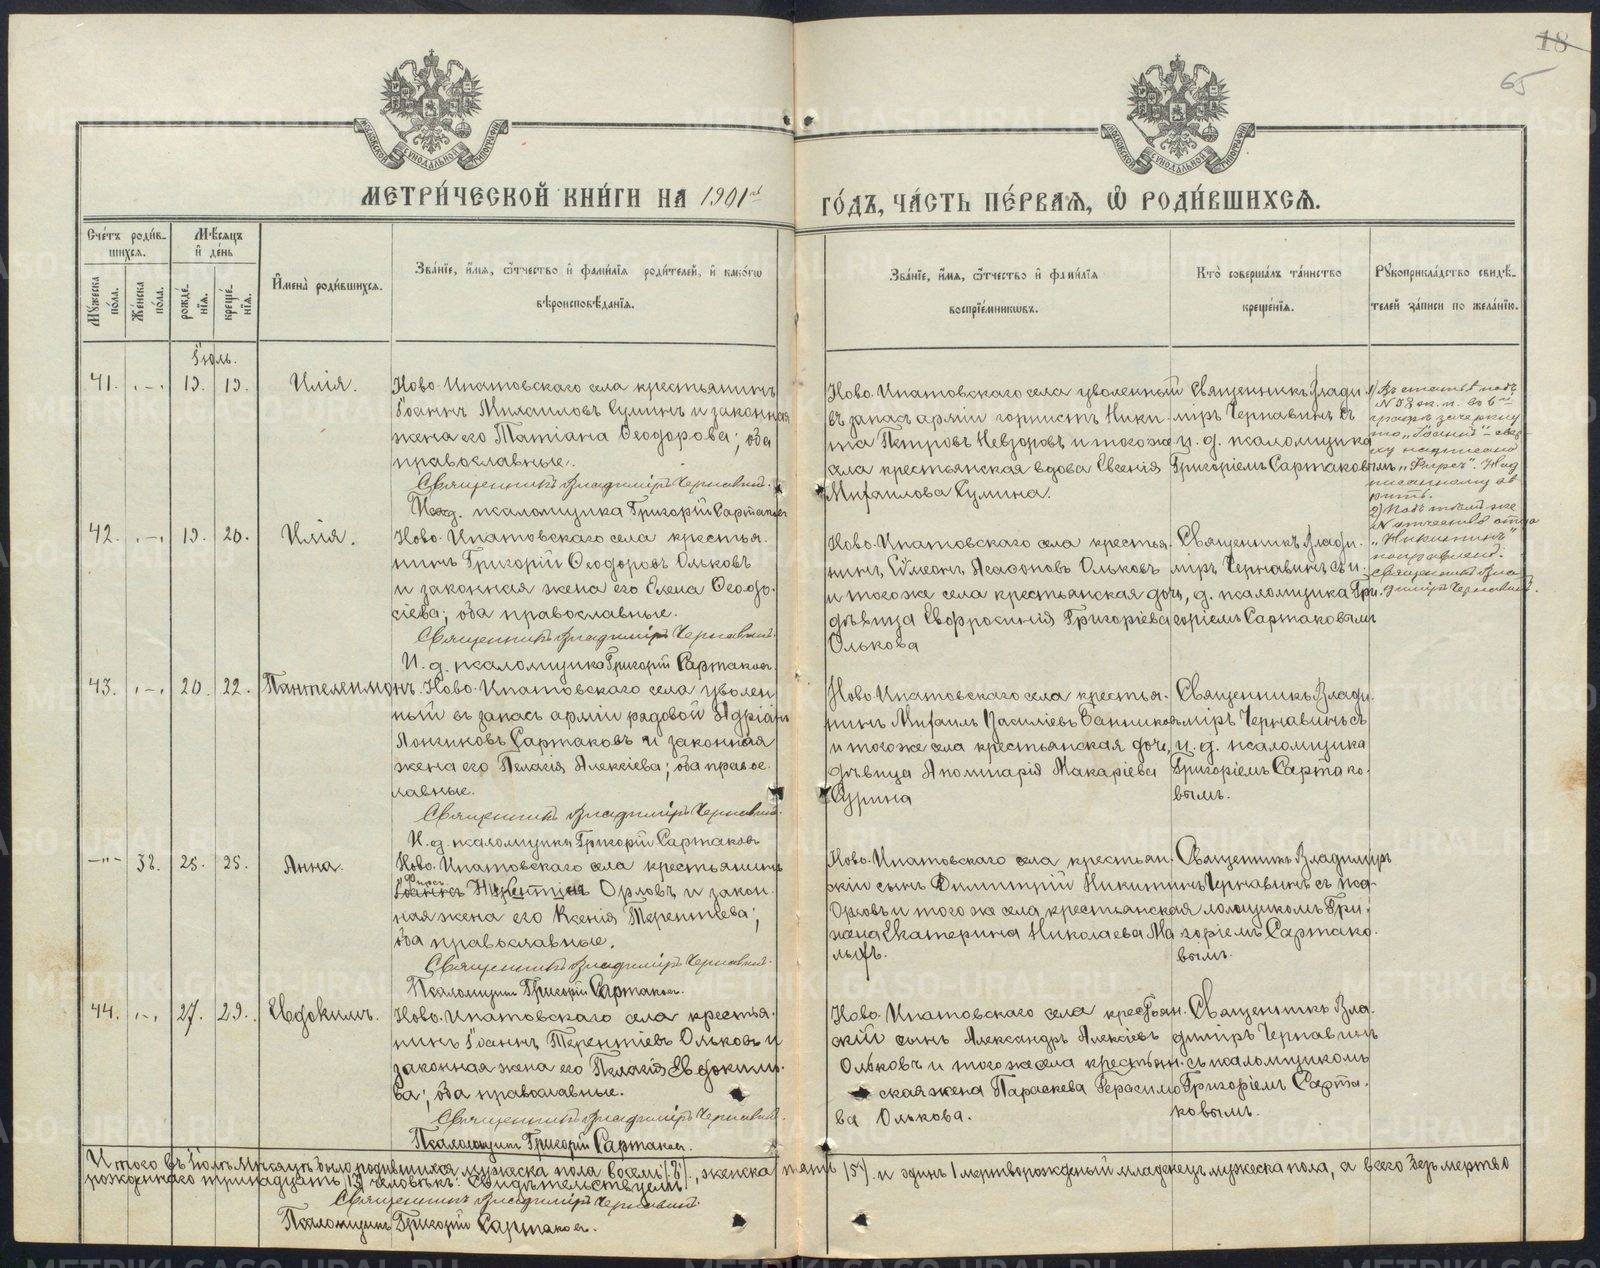 18
65
МОСКОВСКОЙ СѴНОДАЛЬНОЙ ТИПОГРАФІИ
МОСКОВСКОЙ СѴНОДАЛЬНОЙ ТИПОГРАФІИ
МЕТРИ́ЧЕСКОЙ КНИ́ГИ НА 1901й
ГО́ДЪ, ЧА́СТЬ ПЕ́РВАѦ, Ѡ҆ РОДИ́ВШИХСѦ.
Сче́тъ роди́в-
шихся.
Мужеска по́ла.
Же́нска по́ла.
Мѣ́сяцъ
и҆ де́нь
рожде́нїя.
креще́нїя.
И҆мена̀ роди́вшихся.
Зва́нїе, и҆́мя, ѻ҆́тчество и҆ фами́лїя роди́телей, и҆ како́гѡ
вѣроисповѣ́данїя.
Зва́нїе, и҆́мя, ѻ҆́тчество и҆ фами́лїя
воспрїе́мникѡвъ.
Кто̀ соверша́лъ та́инство
креще́нїя.
Рꙋкоприкла́дство свидѣ́-
телей за́писи по жела́нїю.
Іюль.
41. „-„ 19. 19. Илія.
Ново-Ипатовскаго села крестьянинъ
Іоаннъ Михаиловъ Сулинъ и законная
жена его Татіана Ѳеодорова; оба
православные.
Священникъ Владиміръ Чернавинъ.
И. д. псаломщика Григорій Сартаковъ
Ново-Ипатовскаго села уволенный
въ запасъ арміи горнистъ Ники-
та Петровъ Невзоровъ и того же
села крестьянская вдова Евгенія
Михаилова Сулина.
Священникъ Влади-
міръ Чернавинъ съ
и. д. псаломщика
Григоріемъ Сартаковымъ
1) Въ статьѣ подъ
№ 38 ж. п. въ 6й
графѣ зачеркну-
то „Іоаннъ" – свер-
ху надписано
„Фирсъ". Над-
писанному вѣ-
рить.
2) Подъ тѣмъ же
№ отчество отца
„Никитинъ"
поправлено.
Священникъ Вла-
диміръ Чернавинъ.
42. „-„ 19. 20. Илія.
Ново-Ипатовскаго села крестья-
нинъ Григорій Ѳеодоровъ Ольковъ
и законная жена его Елена Ѳеодо-
сіева; оба православные.
Священникъ Владиміръ Чернавинъ.
И. д. псаломщика Григорій Сартаковъ.
Ново-Ипатовскаго села крестья-
нинъ Сѵмеонъ Агаѳоновъ Ольковъ
и того же села крестьянская дочь,
дѣвица Евфросинія Григоріева
Олькова
Священникъ Влади-
міръ Чернавинъ съ и.
д. псаломщика Гри-
горіемъ Сартаковымъ
43. „-„ 20. 22. Пантелеимонъ.
Ново-Ипатовскаго села уволен-
ный въ запасъ арміи рядовой Адріанъ
Лонгиновъ Сартаковъ и законная
жена его Пелагія Алексіева; оба право-
славные.
Священникъ Владиміръ Чернавинъ.
И. д. псаломщика Григорій Сартаковъ
Ново-Ипатовскаго села крестья-
нинъ Михаилъ Василіевъ Банниковъ
и того же села крестьянская дочь,
дѣвица Аполинарія Макаріева
Сурина
Священникъ Влади-
міръ Чернавинъ съ
и. д. псаломщика
Григоріемъ Сартако-
вымъ.
—„— 38. 25. 25. Анна.
Ново-Ипатовскаго села крестьянинъ
Фирсъ
Іоаннъ Никитинъ Орловъ и закон-
ная жена его Ксенія Терентіева;
оба православные.
Священникъ Владиміръ Чернавинъ.
Псаломщикъ Григорій Сартаковъ.
Ново-Ипатовскаго села крестьян-
скій сынъ Димитрій Никитинъ
Орловъ и того же села крестьянская
жена Екатерина Николаева Ма-
лыхъ.
Священникъ Владиміръ
Чернавинъ съ пса-
ломщикомъ Гри-
горіемъ Сартако-
вымъ.
44. „-„ 27. 29. Евдокимъ.
Ново-Ипатовскаго села крестья-
нинъ Іоаннъ Терентіевъ Ольковъ и
законная жена его Пелагія Евдокимо-
ва; оба православные.
Священникъ Владиміръ Чернавинъ.
Псаломщикъ Григорій Сартаковъ.
Ново-Ипатовскаго села крестьян-
скій сынъ Александръ Алексіевъ
Ольковъ и того же села крестьян-
ская жена Параскева Герасимо-
ва Олькова.
Священникъ Вла-
диміръ Чернавинъ
съ псаломщикомъ
Григоріемъ Сарта-
ковымъ.
Итого въ Іюлѣ мѣсяцѣ было родившихся мужеска пола восемь (8), женска пять (5) и одинъ 1 мертворожденный младенецъ мужеска пола, а всего безъ мертво
рожденнаго тринадцать (13) человѣкъ. Свидѣтельствуемъ:
Священникъ Владиміръ Чернавинъ.
Псаломщикъ Григорій Сартаковъ.
METRIKI.GASO-URAL.RU